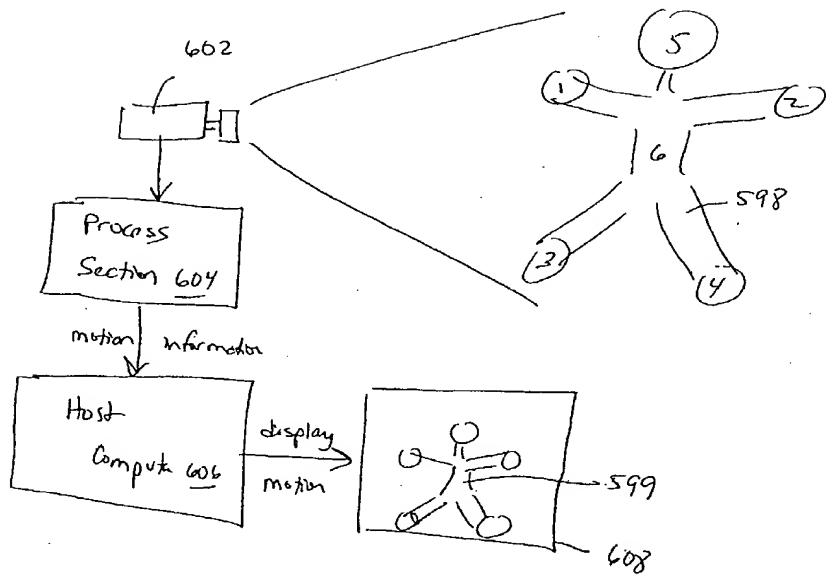 602
5
1
2
6
598
3
4
Process
Section 604
motion information
Host
Computer 606
display
motion
599
608